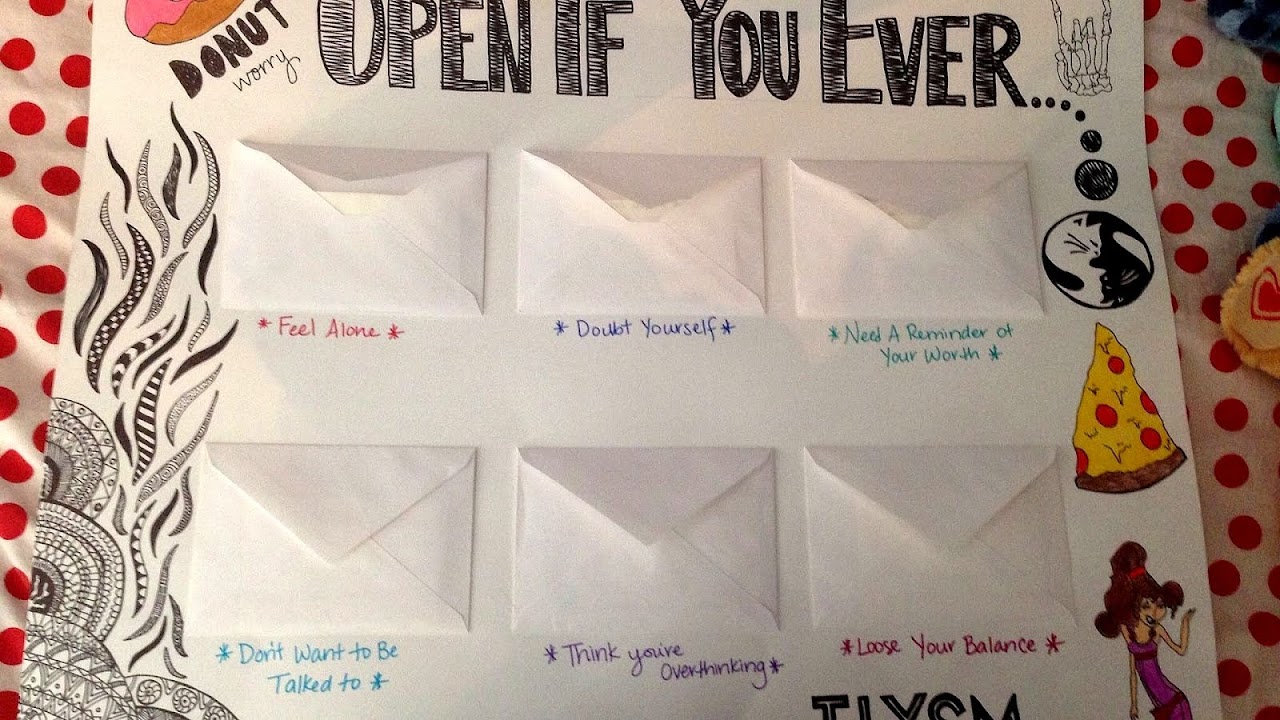 DONUT
worry
OPEN IF YOU EVER...
* Feel Alone *
* Doubt Yourself *
* Need A Reminder of
Your Worth *
* Don't Want to Be
Talked to *
* Think you're
Overthinking *
* Loose Your Balance *
TLYSM